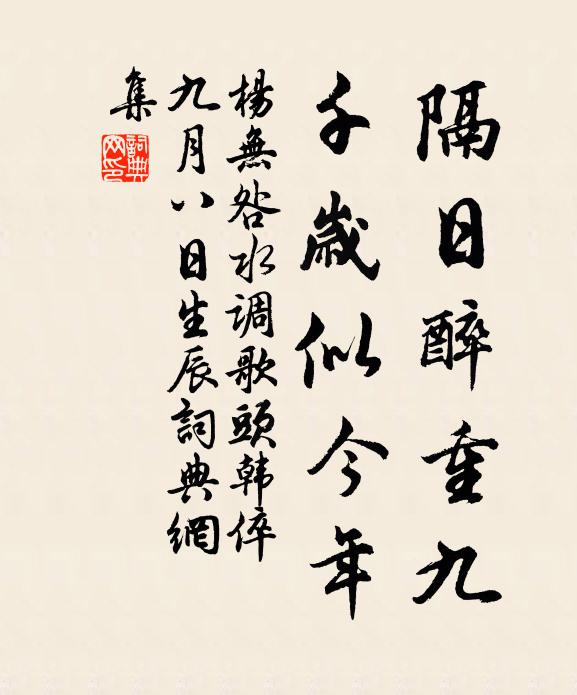 隔日醉重九
千歲似今年
楊無咎水调歌頭韩倅
九月八日生辰詞典網
集
詞典網印